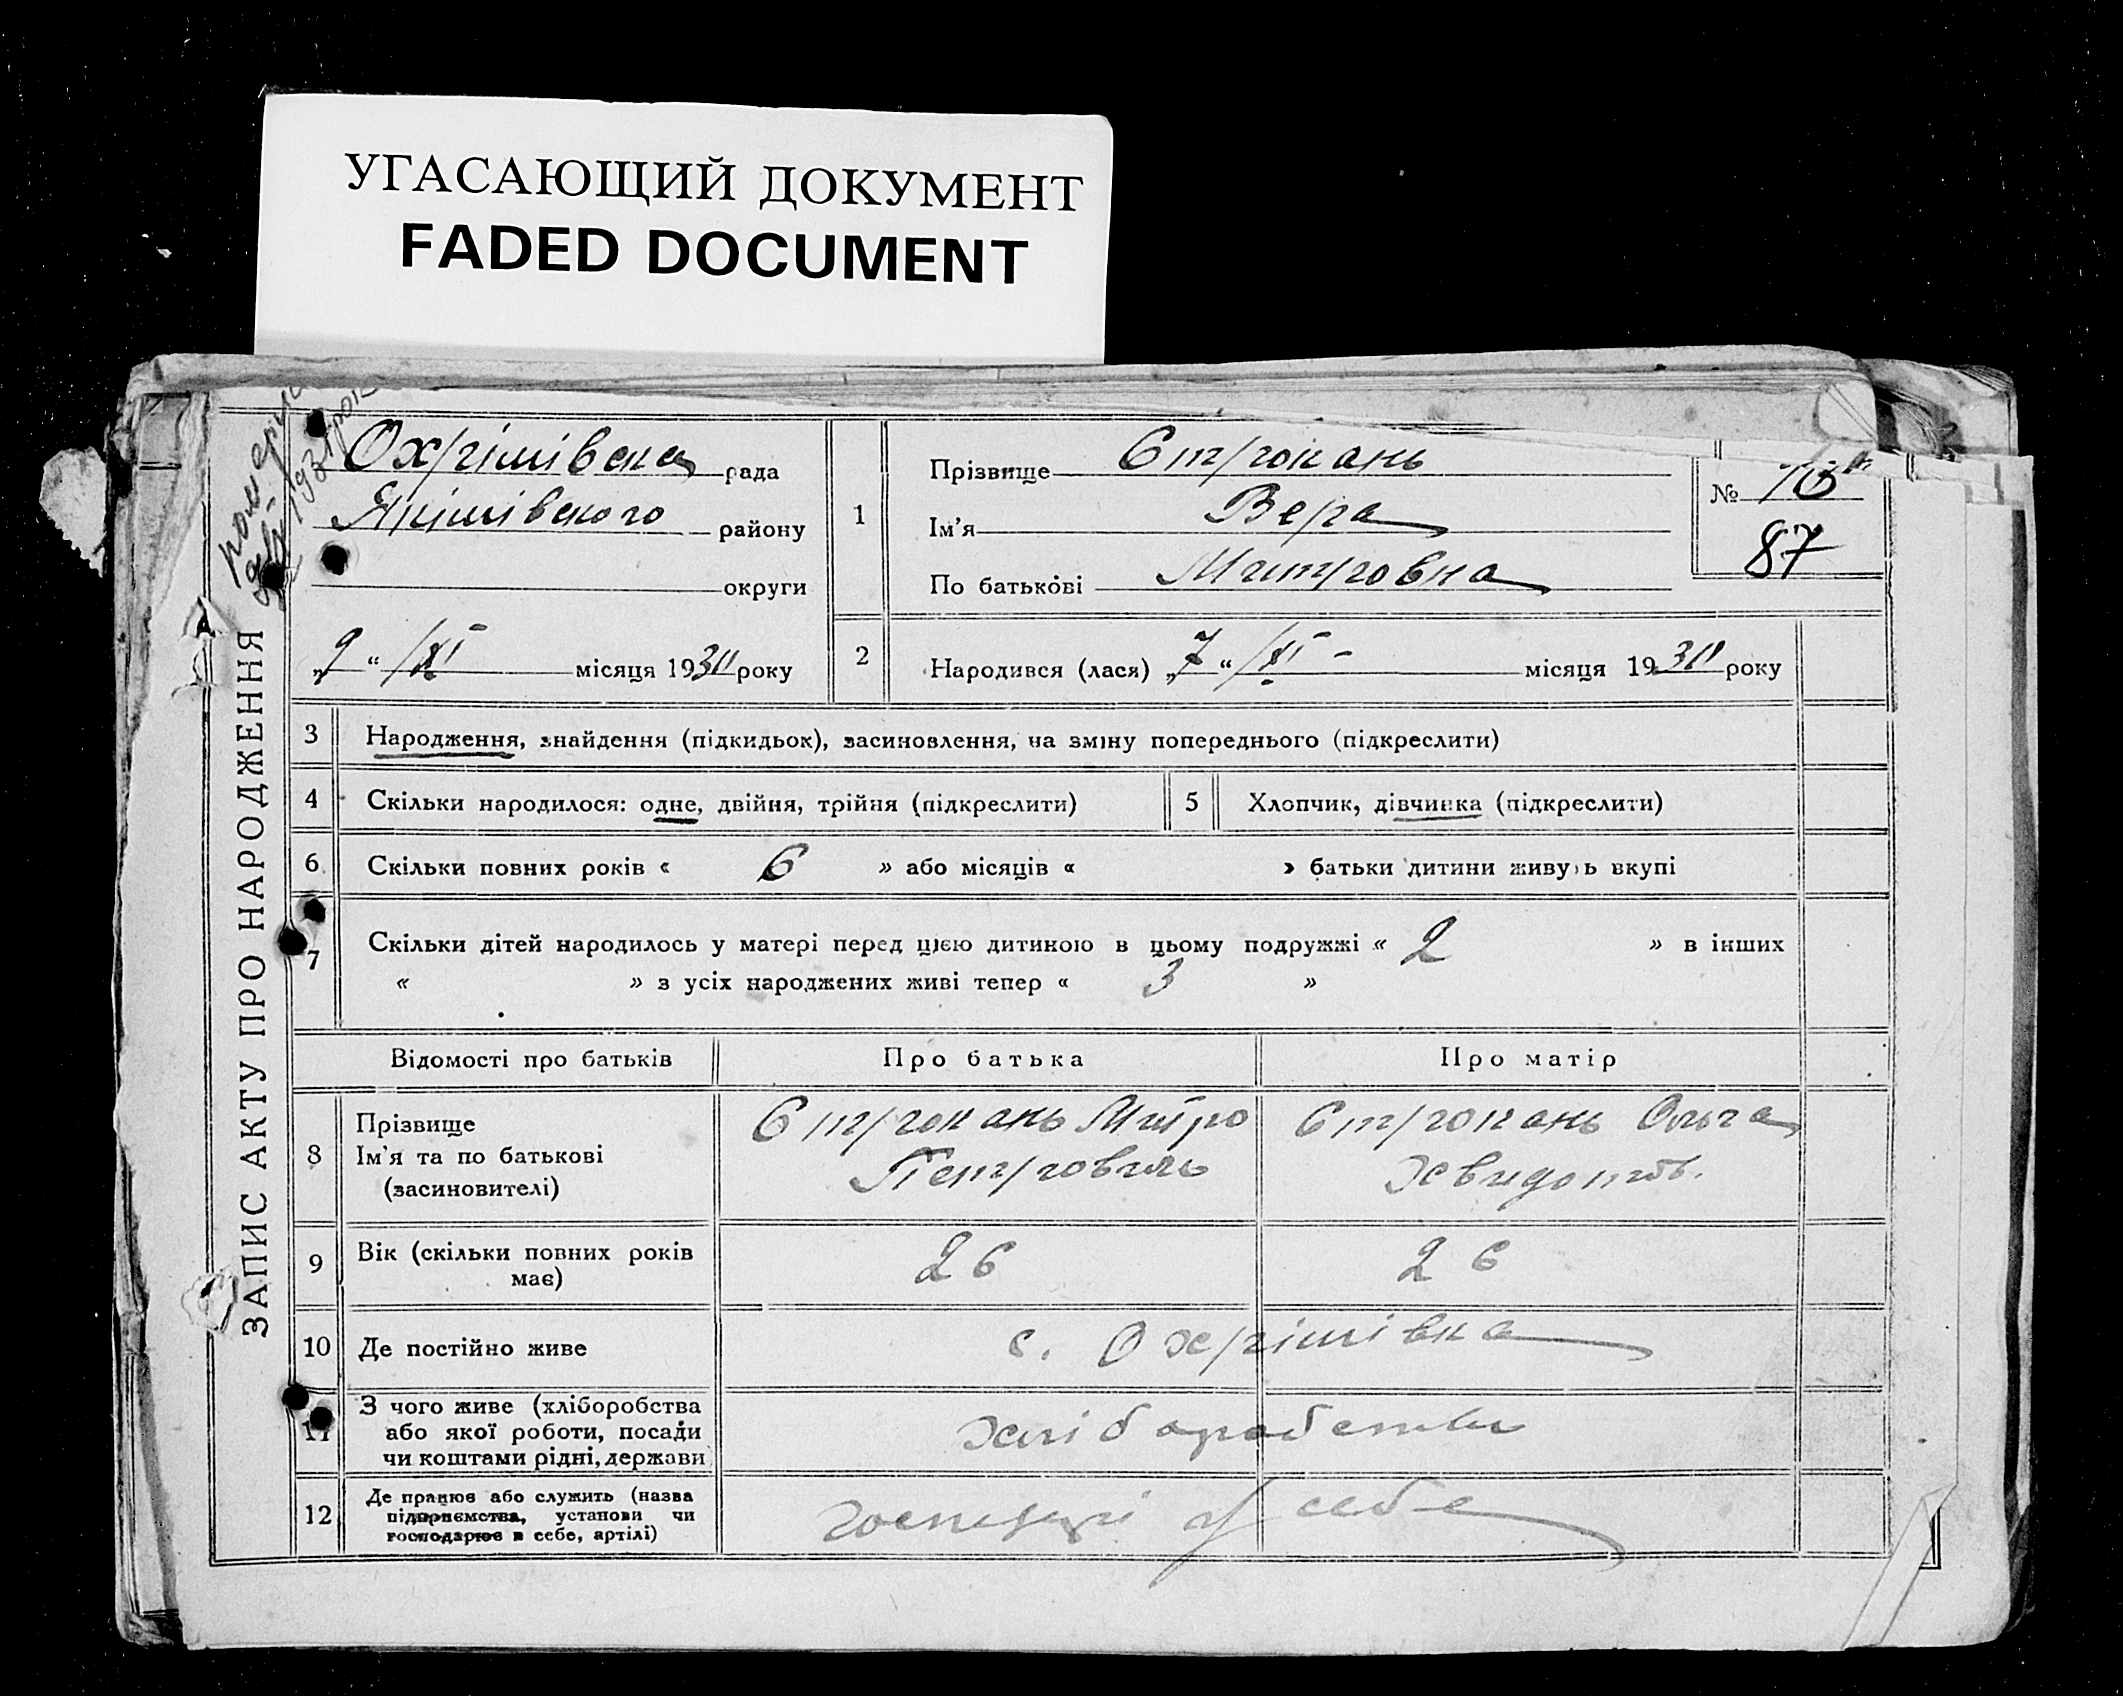 УГАСАЮЩИЙ ДОКУМЕНТ
FADED DOCUMENT
ЗАПИС АКТУ ПРО НАРОДЖЕННЯ
Охрімівська рада
Якимівського району
округи
„9“ /XI місяця 1930 року
1
Прізвище Строкань
Ім'я Вера
По батькові Митровна
№
87
2
Народився (лася) „7“ /XI - місяця 1930 року
3 Народження, знайдення (підкидьок), засиновлення, на зміну попереднього (підкреслити)
4 Скільки народилося: одне, двійня, трійня (підкреслити)
5 Хлопчик, дівчинка (підкреслити)
6 Скільки повних років « 6 » або місяців « » батьки дитини живуть вкупі
7 Скільки дітей народилось у матері перед цією дитиною в цьому подружжі « 2 » в інших
« » з усіх народжених живі тепер « 3 »
Відомості про батьків Про батька Про матір
8 Прізвище
Ім'я та по батькові
(засиновителі)
Строкань Митро
Петрович
Строкань Ольга
9 Вік (скільки повних років
має)
26
26
10 Де постійно живе
с. Охрімівка
11 З чого живе (хліборобства
або якої роботи, посади
чи коштами рідні, держави
хліборобство
12 Де працює або служить (назва
підприємства, установи чи
господарює в себе, артілі)
у себе